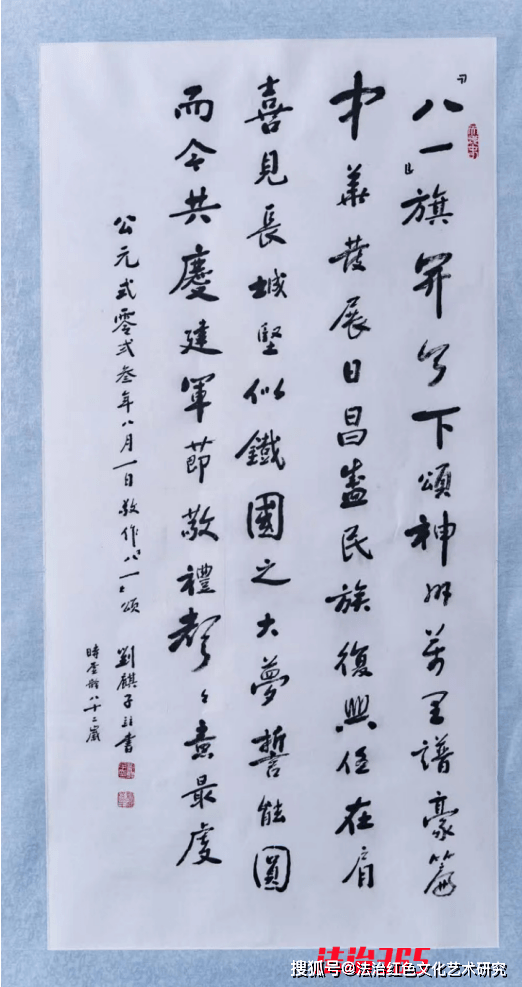 『八一』旗開天下頌神州萬里譜豪篇
中華發展日昌盛民族復興任在肩
喜見長城堅似鐵國之大夢誓能圓
而今共慶建軍節敬禮聲々意最虔
公元弍零弍叁年八月一日敬作『八一』頌 劉麒子詩書
時虛齡八十二歲
法治365
搜狐号@法治红色文化艺术研究